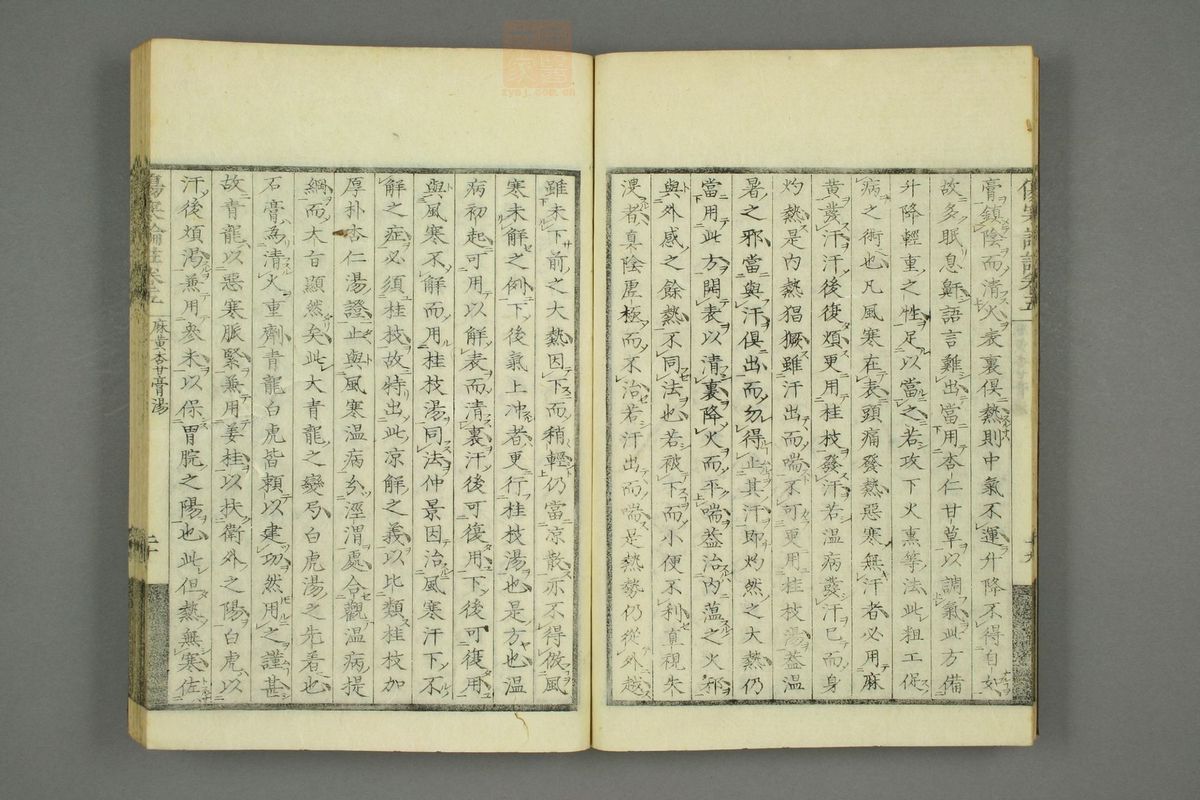 膏鎮陰而清火表裏俱熱則中氣不運升降不得自如
故多眠息鼾語言難出當用杏仁甘草以調氣此方備
升降輕重之性足以當之若攻下火熏等法此粗工促
病之術也凡風寒在表頭痛發熱惡寒無汗者必用麻
黃發汗汗後復煩更用桂枝發汗若溫病發汗已而身
灼熱是內熱猖獗雖汗出而喘不可更用桂枝湯蓋溫
暑之邪當與汗俱出而勿得止其汗即灼然之大熱仍
當用此方開表以清裏降火而平喘蓋治內蘊之火邪
與外感之餘熱不同法也若被下而小便不利直視失
溲者真陰虛極而不治若汗出而喘是熱勢仍從外越
雖未下前之大熱因下而稍輕仍當涼散亦不得倣風
寒未解之例下後氣上冲者更行桂枝湯也是方也溫
病初起可用以解表而清裏汗後可復用下後可復用
與風寒不解而用桂枝湯同法仲景因治風寒汗下不
解之症必須桂枝故特出此凉解之義以比類桂枝加
厚朴杏仁湯證止與風寒溫病分涇渭處合觀溫病提
綱而大旨顯然矣此大青龍之變局白虎湯之先着也
石膏為清火重劑青龍白虎皆賴以建功然用之謹甚
故青龍以惡寒脈緊兼用姜桂以扶衛外之陽白虎以
汗後煩渴兼用參米以保胃脘之陽也此但熱無寒佐
傷寒論註卷五
麻黃杏甘膏湯
二十